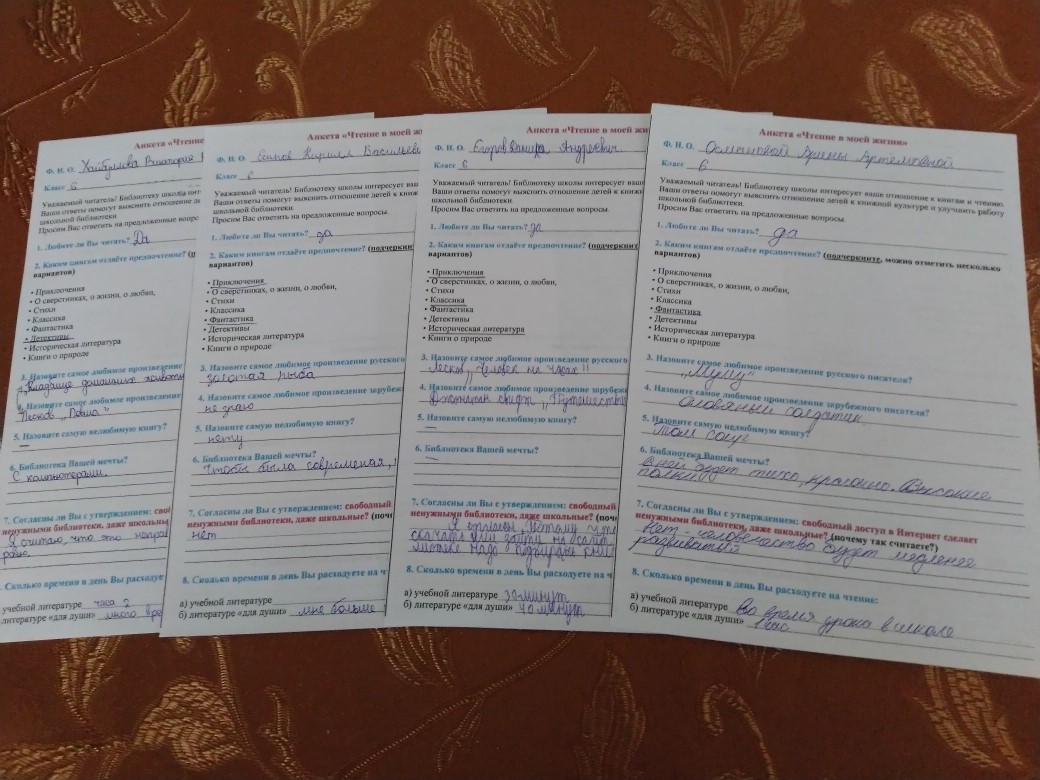 Анкета «Чтение
Ф. И. О. Хайбулова Виктория
Класс 6
Уважаемый читатель! Библиотека школы инт
Ваши ответы помогут выяснить отношение де
школьной библиотеки.
Просим Вас ответить на предложенные вопрос
1. Любите ли Вы читать? Да
2. Каким книгам отдаёте предпочтение? (п
вариантов)
• Приключения
• О сверстниках, о жизни, о любви,
• Стихи
• Классика
• Фантастика
• Детективы
• Историческая литература
• Книги о природе
3. Назовите самое любимое произведение
домашних животн
4. Назовите самое любимое произведение
Лесков
5. Назовите самую нелюбимую книгу?
—
6. Библиотека Вашей мечты?
С компьютерами.
7. Согласны ли Вы с утверждением: своб
ненужными библиотеки, даже школьны
Я считаю, что это неправ
Сколько времени в день Вы расходуете
учебной литературе часа 2
литературе «для души» много вре
Анкета «Чтение в моей ж
Ф. И. О. Кирилл Васильеви
Класс 6
Уважаемый читатель! Библиотеку школы интересует ваш
Ваши ответы помогут выяснить отношение детей к книж
школьной библиотеки.
Просим Вас ответить на предложенные вопросы.
1. Любите ли Вы читать? да
2. Каким книгам отдаёте предпочтение? (подчеркни
вариантов)
• Приключения
• О сверстниках, о жизни, о любви,
• Стихи
• Классика
• Фантастика
• Детективы
• Историческая литература
• Книги о природе
3. Назовите самое любимое произведение русского
золотая рыба
4. Назовите самое любимое произведение зарубеж
не знаю
5. Назовите самую нелюбимую книгу?
нету
6. Библиотека Вашей мечты?
Чтобы была современая,
7. Согласны ли Вы с утверждением: свободный
ненужными библиотеки, даже школьные? (поче
нет
8. Сколько времени в день Вы расходуете на чт
а) учебной литературе
б) литературе «для души» мне больше
Анкета «Чтение в моей жи
Ф. И. О. Егоров Андреевич
Класс 6
Уважаемый читатель! Библиотеку школы интересует ваше
Ваши ответы помогут выяснить отношение детей к книжн
школьной библиотеки.
Просим Вас ответить на предложенные вопросы.
1. Любите ли Вы читать? да
2. Каким книгам отдаёте предпочтение? (подчеркнит
вариантов)
• Приключения
• О сверстниках, о жизни, о любви,
• Стихи
• Классика
• Фантастика
• Детективы
• Историческая литература
• Книги о природе
3. Назовите самое любимое произведение русского
Лесков „Человек на часах"
4. Назовите самое любимое произведение зарубежн
Джонатан свифт „Путешестви
5. Назовите самую нелюбимую книгу?
—
6. Библиотека Вашей мечты?
—
7. Согласны ли Вы с утверждением: свободный
ненужными библиотеки, даже школьные? (поче
Я согласен, потому что
скачать или зайти на сайт
надо
8. Сколько времени в день Вы расходуете на ч
а) учебной литературе 30 минут
б) литературе «для души» 40 минут
Анкета «Чтение в моей жизни»
Ф. И. О. Османовой Арины Артёмовной
Класс 6
Уважаемый читатель! Библиотеку школы интересует ваше отношение к книгам и чтению.
Ваши ответы помогут выяснить отношение детей к книжной культуре и улучшить работу
школьной библиотеки.
Просим Вас ответить на предложенные вопросы.
1. Любите ли Вы читать? да
2. Каким книгам отдаёте предпочтение? (подчеркните, можно отметить несколько
вариантов)
• Приключения
• О сверстниках, о жизни, о любви,
• Стихи
• Классика
• Фантастика
• Детективы
• Историческая литература
• Книги о природе
3. Назовите самое любимое произведение русского писателя?
„Муму"
4. Назовите самое любимое произведение зарубежного писателя?
Оловяный солдатик
5. Назовите самую нелюбимую книгу?
Том соуе
6. Библиотека Вашей мечты?
В ней будет тихо, красочно. Высокие
полки.
7. Согласны ли Вы с утверждением: свободный доступ в Интернет сделает
ненужными библиотеки, даже школьные? (почему так считаете?)
Нет, человечество будет медленее
развиваться
8. Сколько времени в день Вы расходуете на чтение:
а) учебной литературе Во время урока в школе
б) литературе «для души» 1 час